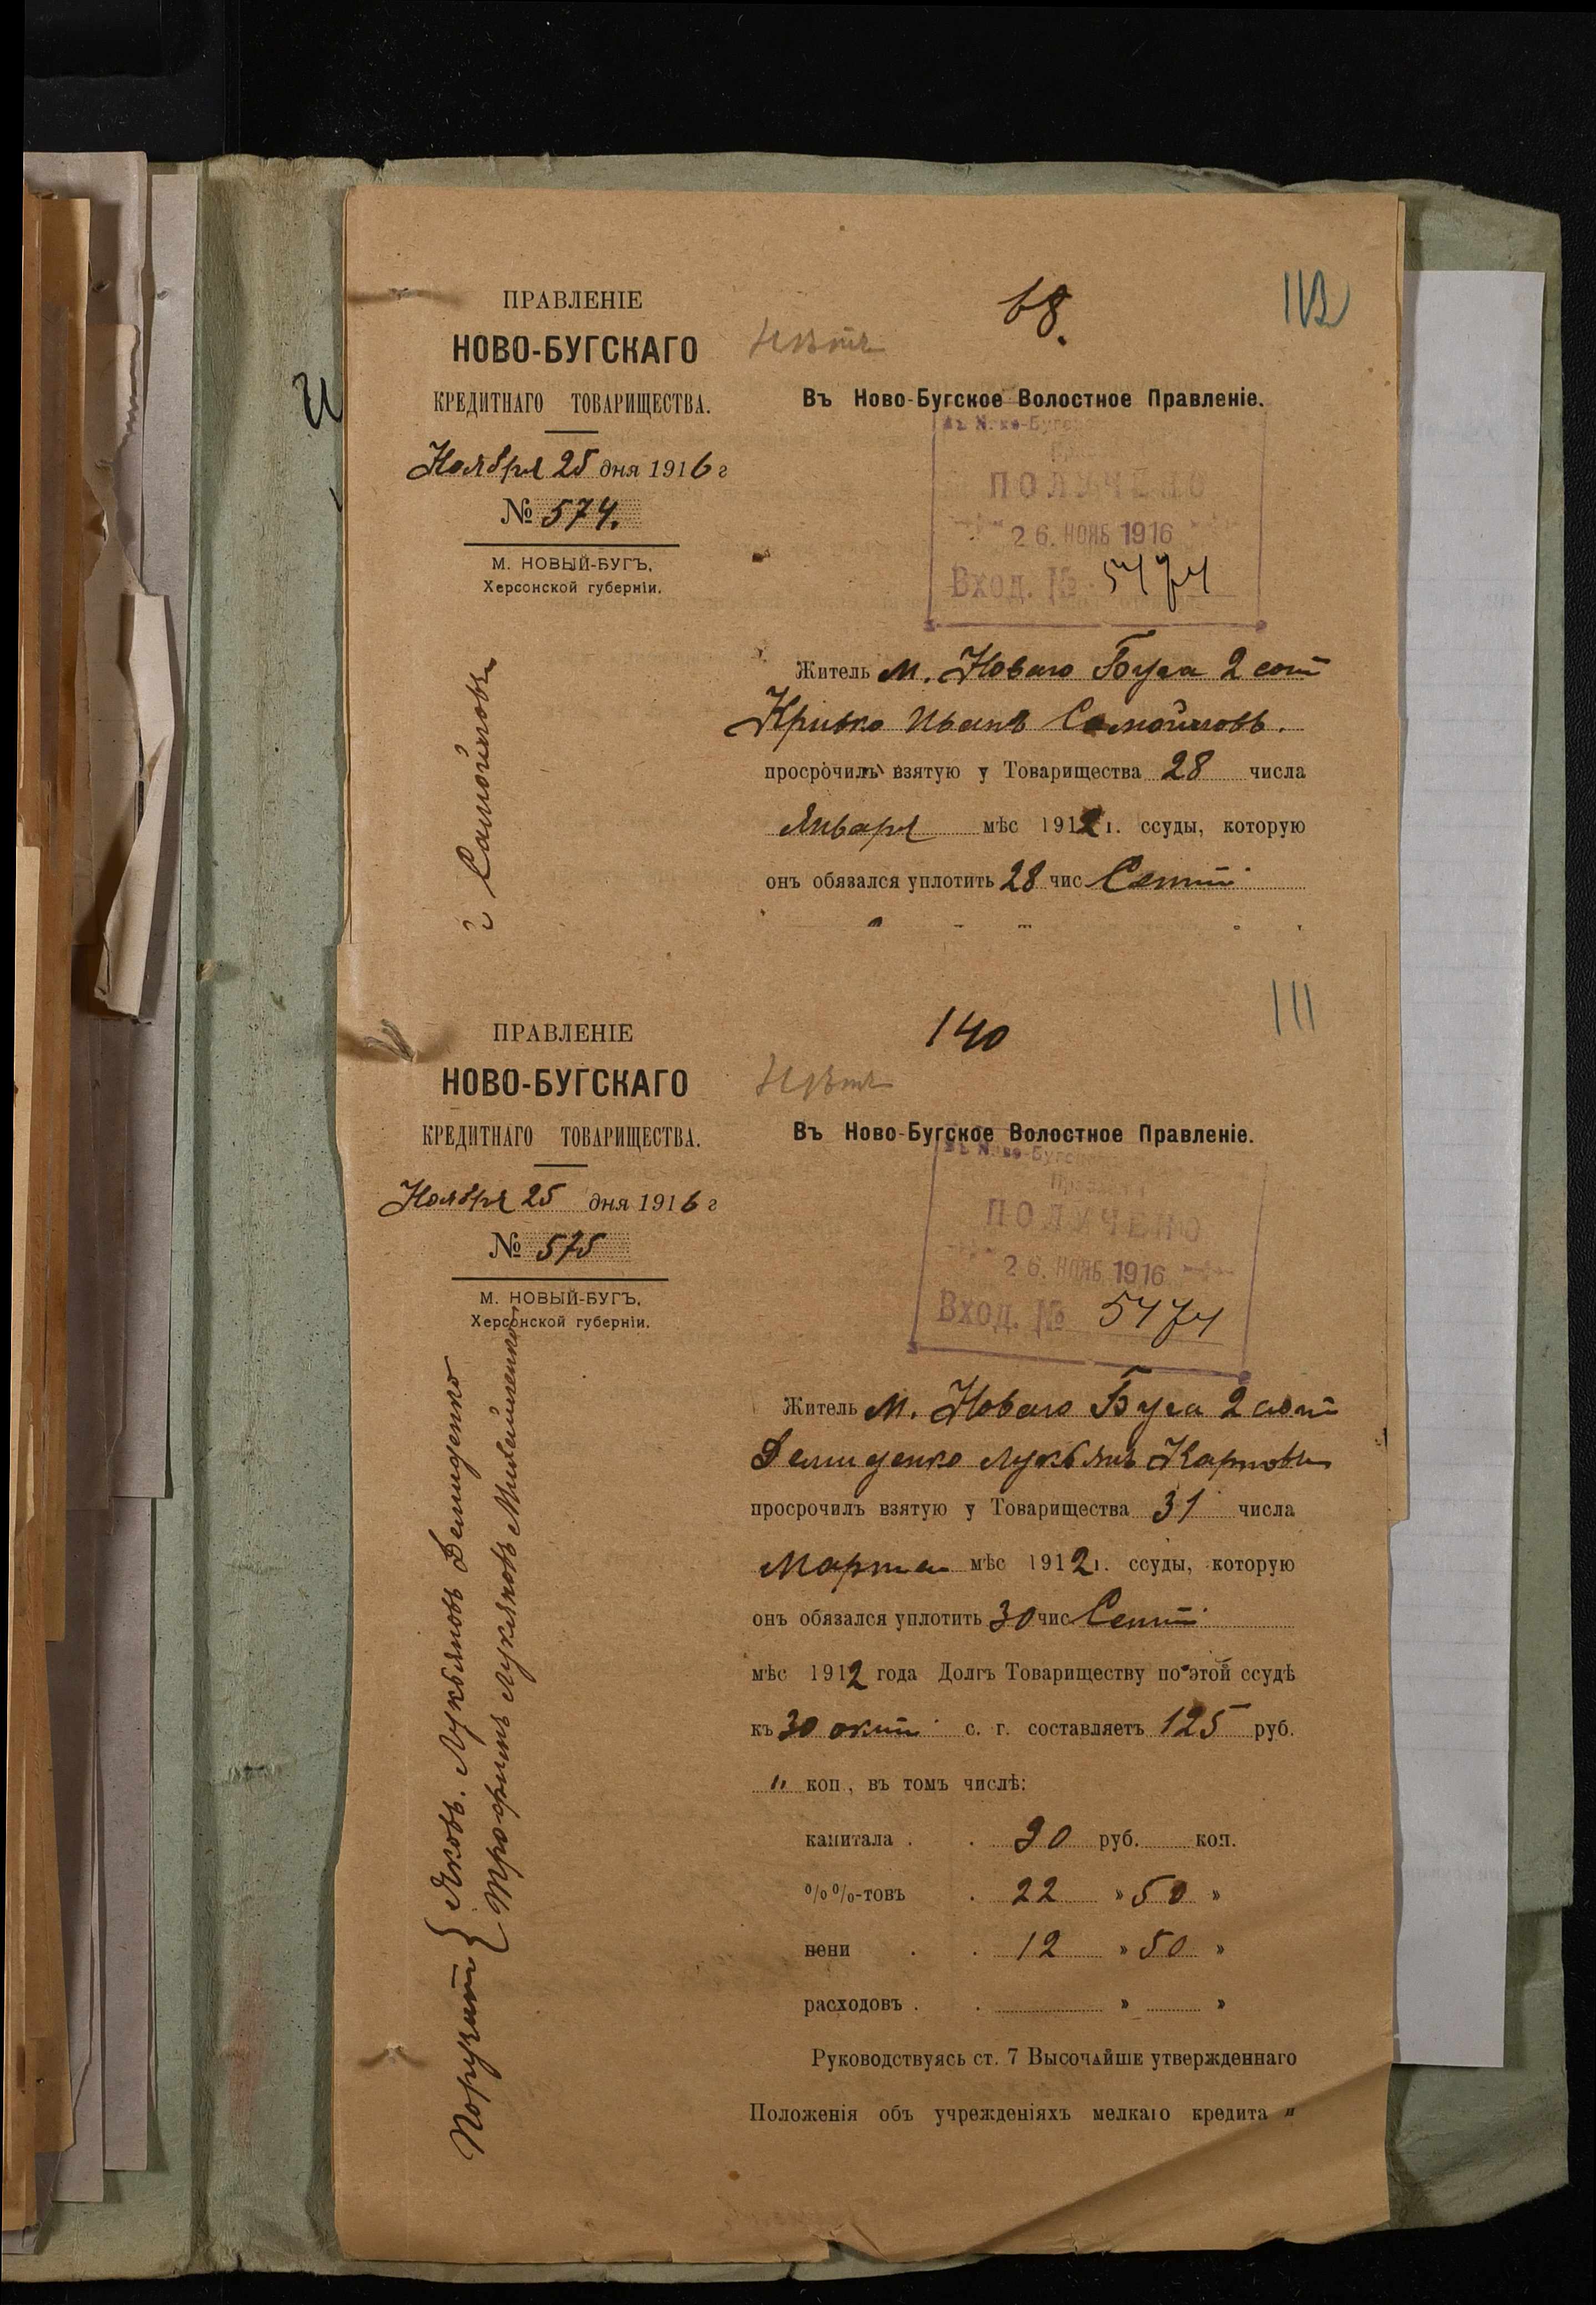 ПРАВЛЕНІЕ
НОВО-БУГСКАГО
КРЕДИТНАГО ТОВАРИЩЕСТВА.
Ноября 25 дня 1916 г
№ 574.
М. НОВЫЙ-БУГЪ,
Херсонской губерніи.
Самойловъ
68.
112
Нѣтъ
Въ Ново-Бугское Волостное Правленіе.
ПОЛУЧЕНО
26. НОЯБ 1916
Вход. № 5474
Житель М. Новаго Буга 2 сот
Кривко Иванъ Самойловъ.
просрочилъ взятую у Товарищества 28 числа
Января мѣс 1912 г. ссуды, которую
онъ обязался уплотить 28 чис Сент.
ПРАВЛЕНІЕ
НОВО-БУГСКАГО
КРЕДИТНАГО ТОВАРИЩЕСТВА.
Ноября 25 дня 1916 г
№ 575
М. НОВЫЙ-БУГЪ,
Херсонской губерніи.
Поручит { Яковъ. Лукьяновъ Демиденко
Трофимъ Лукяновъ
140
111
Нѣтъ
Въ Ново-Бугское Волостное Правленіе.
ПОЛУЧЕНО
26. НОЯБ. 1916
Вход. № 5474
Житель М. Новаго Буга 2 сот
Демиденко Лукьянъ Карповъ
просрочилъ взятую у Товарищества 31 числа
Марта мѣс 1912 г. ссуды, которую
онъ обязался уплотить 30 чис Сент.
мѣс 1912 года Долгъ Товариществу по этой ссудѣ
къ 30 окт. с. г. составляетъ 125 руб.
" коп, въ томъ числѣ:
капитала . . 90 руб. коп.
%%-товъ . 22 » 50 »
пени . . 12 » 50 »
расходовъ . . » »
Руководствуясь ст. 7 ВЫСОЧАЙШЕ утвержденнаго
Положенія объ учрежденіяхъ мелкаго кредита и